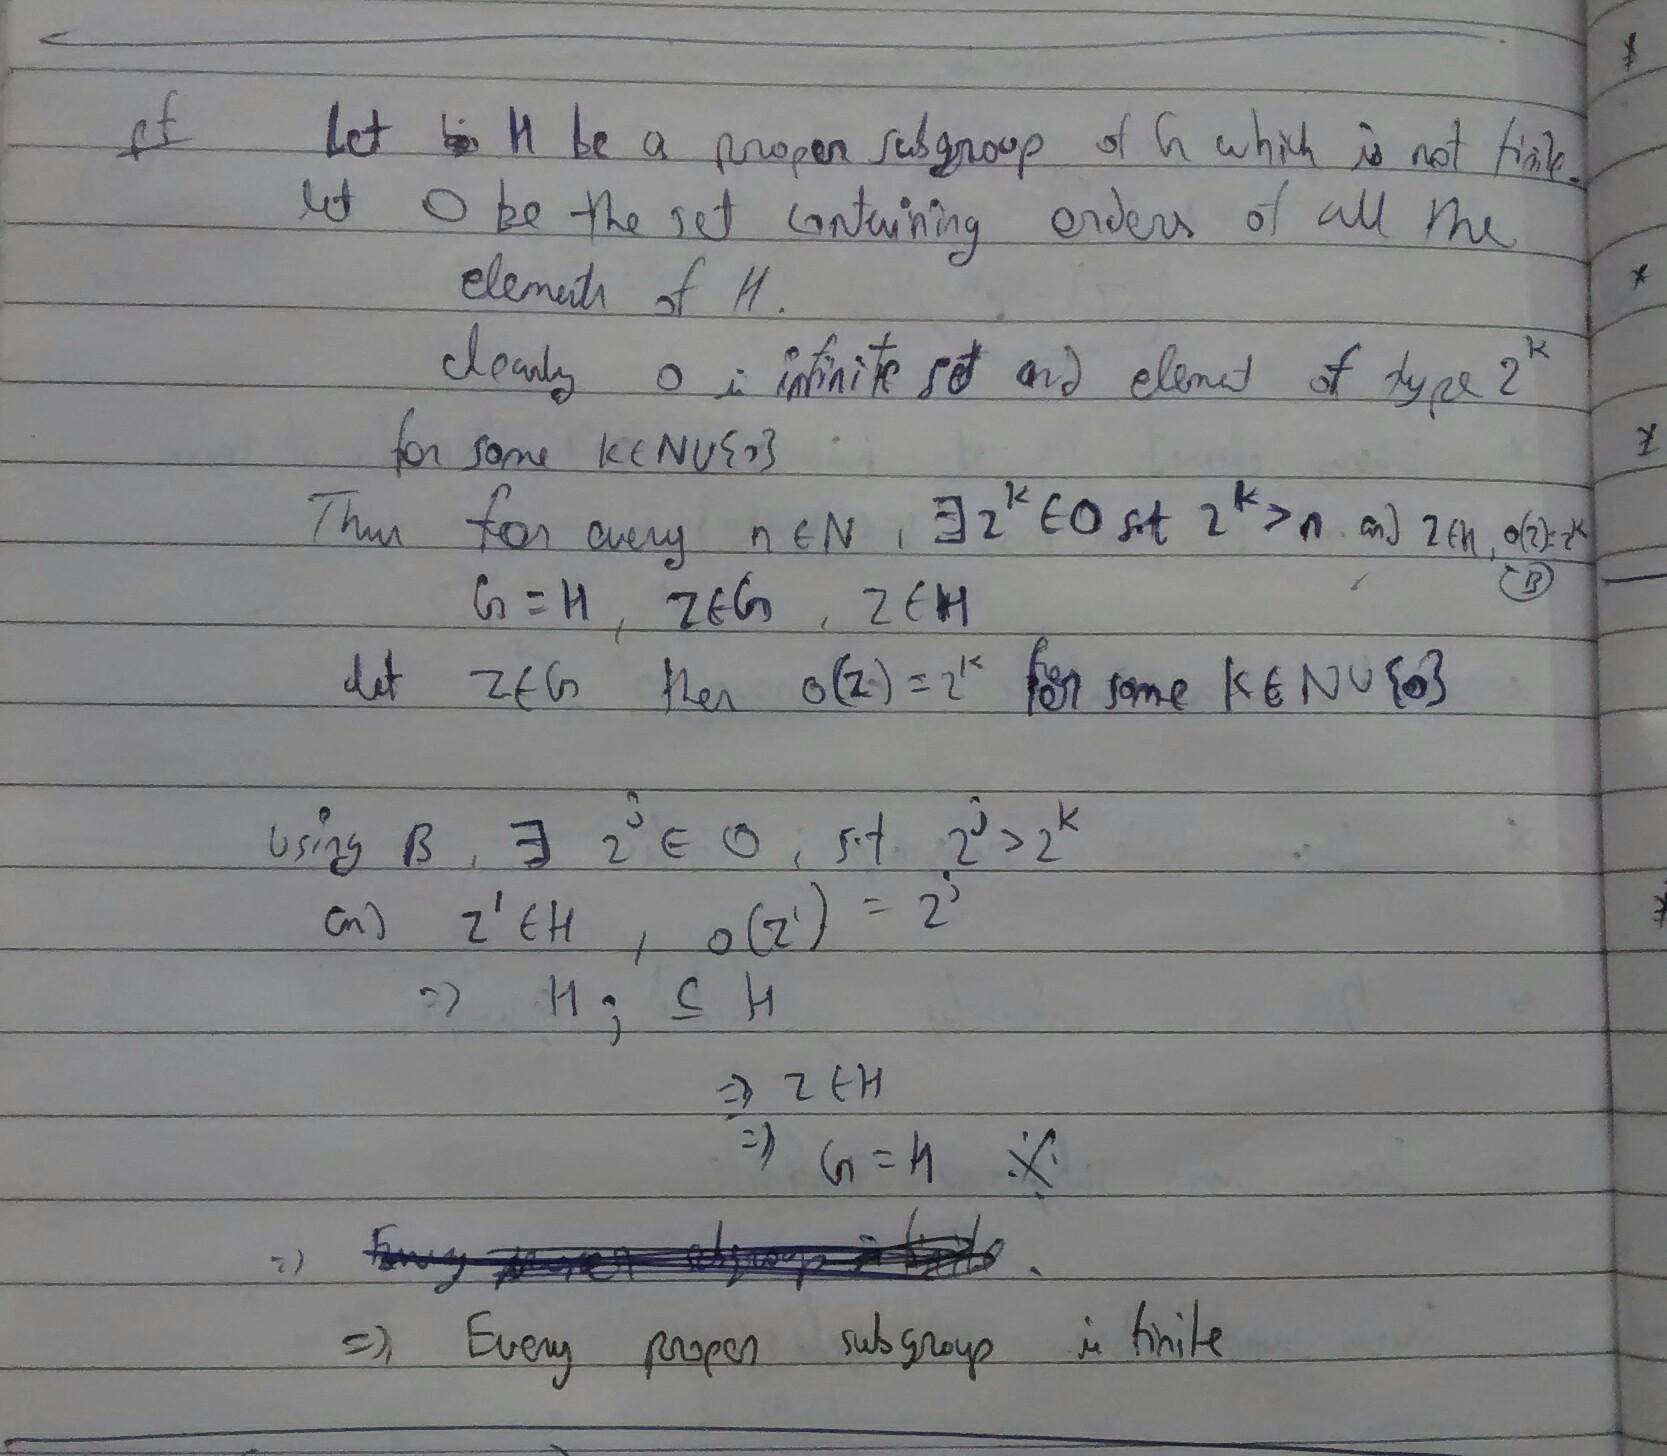 pf Let H be a proper subgroup of G which is not finite.
let O be the set containing orders of all the
elements of H.
clearly O is infinite set and element of type 2^k
for some k∈N∪{0}
Thus for every n∈N, ∃ 2^k ∈ O s.t 2^k > n and z∈H, o(z)=2^k
(B)
G = H, z∈G, z∈H
let z∈G then o(z) = 2^k for some k∈N∪{0}
Using B, ∃ 2^j ∈ O, s.t 2^j > 2^k
and z' ∈ H, o(z') = 2^j
⇒ H_j ⊆ H
⇒ z∈H
⇒ G = H ※
⇒
⇒ Every proper subgroup is finite